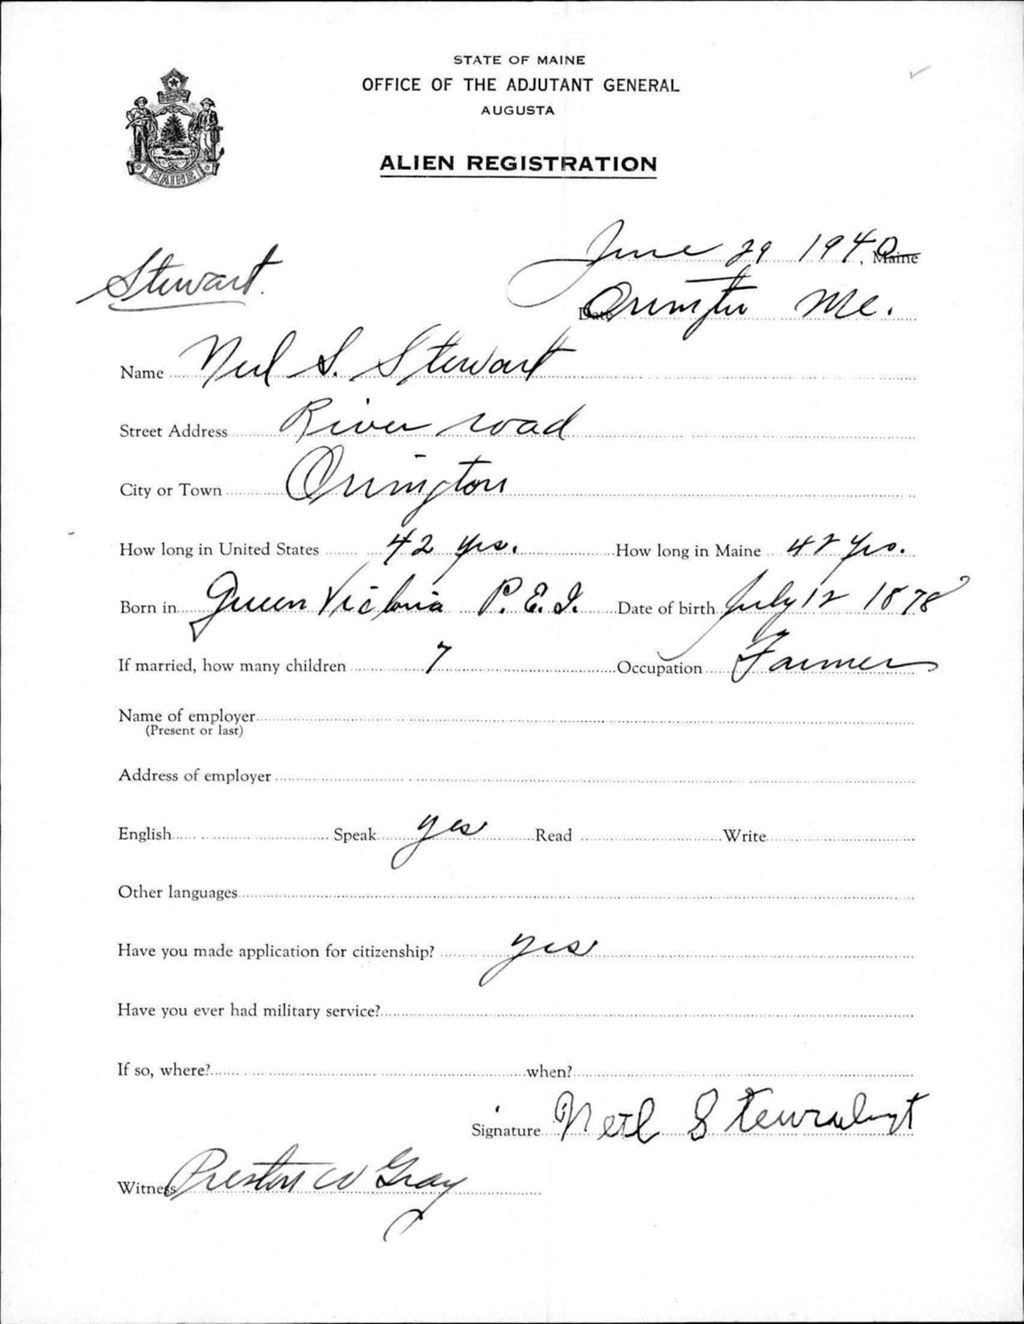 STATE OF MAINE
OFFICE OF THE ADJUTANT GENERAL
AUGUSTA
ALIEN REGISTRATION
MAINE
Stewart.
June 29 1940, Maine
Date Orrington Me.
Name Neil S. Stewart
Street Address River road
City or Town Orrington
How long in United States 42 yrs. How long in Maine 42 yrs.
Born in Queen Victoria P.E.I. Date of birth July 12 1878
If married, how many children 7 Occupation Farmer
Name of employer
(Present or last)
Address of employer
English Speak yes Read Write
Other languages
Have you made application for citizenship? yes
Have you ever had military service?
If so, where? when?
Signature Neil S
Witness Preston W Gray